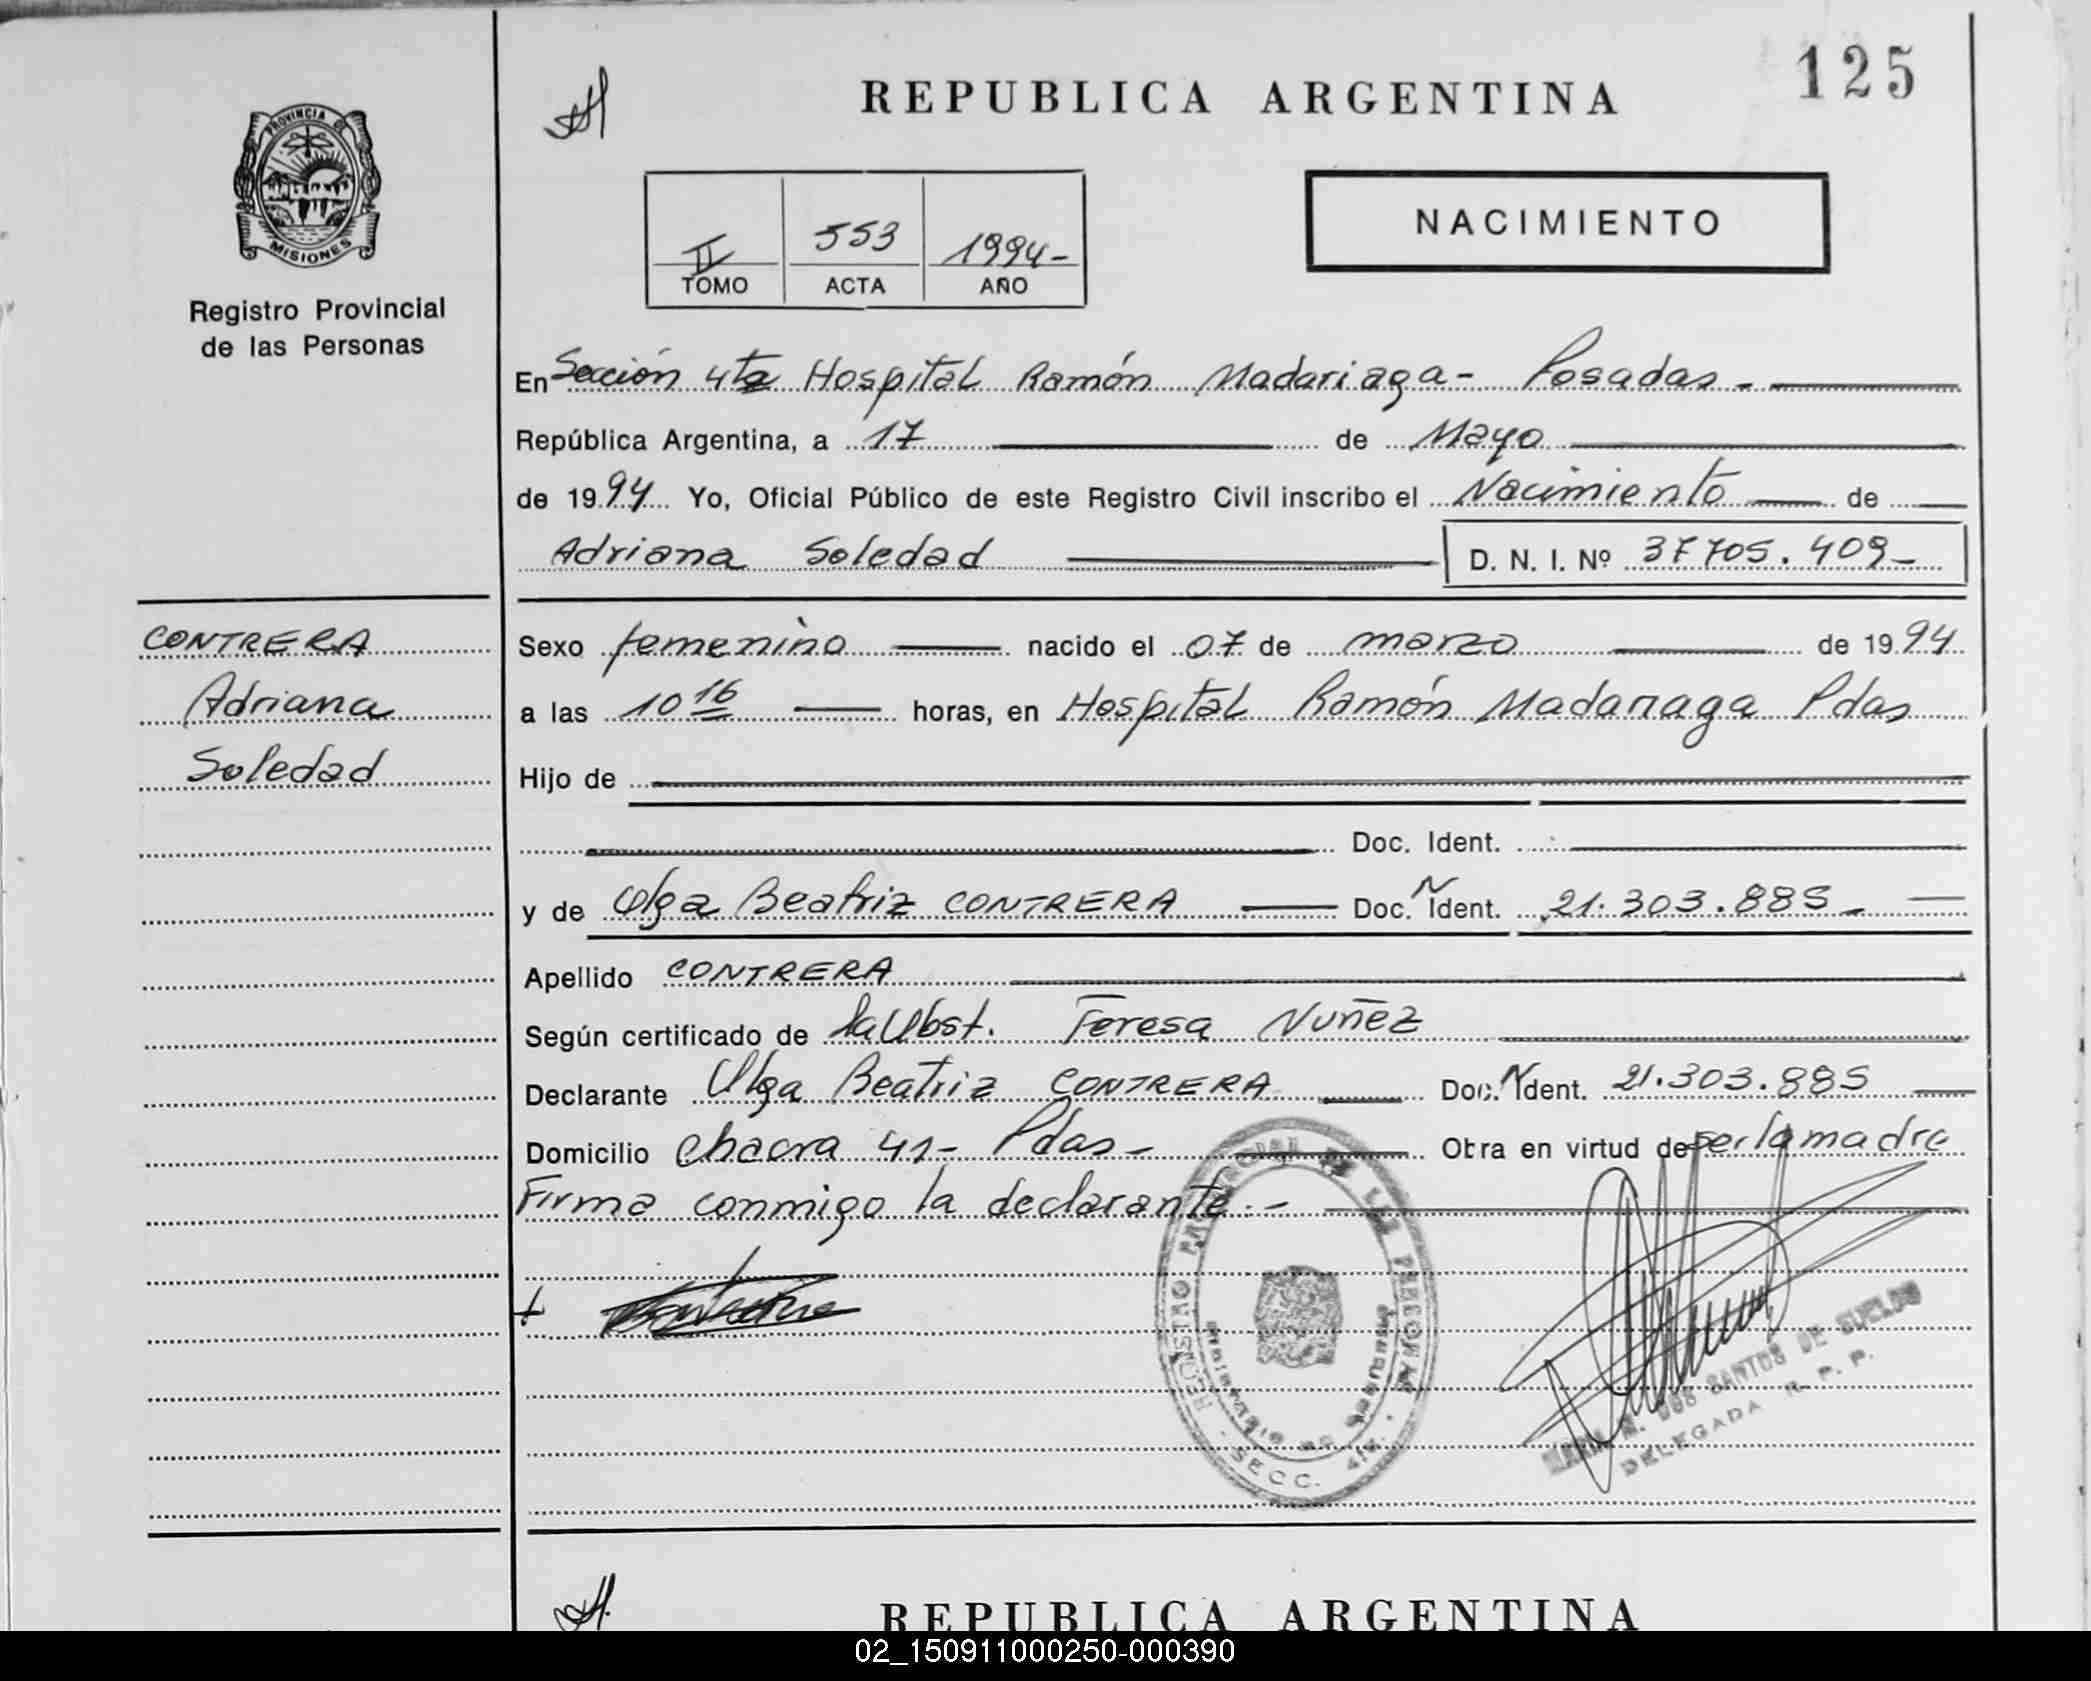 125
REPUBLICA ARGENTINA
PROVINCIA DE
MISIONES
Registro Provincial
de las Personas
NACIMIENTO
II 553 1994-
TOMO ACTA AÑO
En Sección 4ta Hospital Ramón Madariaga - Posadas -
República Argentina, a 17 de Mayo
de 1994 Yo, Oficial Público de este Registro Civil inscribo el Nacimiento de
Adriana Soledad D. N. I. Nº 37705.409-
CONTRERA
Adriana
Soledad
Sexo femenino nacido el 07 de marzo de 1994
a las 10 16 horas, en Hospital Ramón Madariaga Pdas
Hijo de
Doc. Ident.
y de Olga Beatriz CONTRERA Doc. N Ident. 21.303.885-
Apellido CONTRERA
Según certificado de la Obst. Teresa Nuñez
Declarante Olga Beatriz CONTRERA Doc. N Ident. 21.303.885
Domicilio Chacra 41- Pdas- Obra en virtud de ser la madre
Firma conmigo la declarante.-
REGISTRO PROVINCIAL DE LAS PERSONAS
Ministerio de Gobierno
SECC. 4ta.
DOS SANTOS DE SUELDO
DELEGADA R. P. P.
REPUBLICA ARGENTINA
02_150911000250-000390